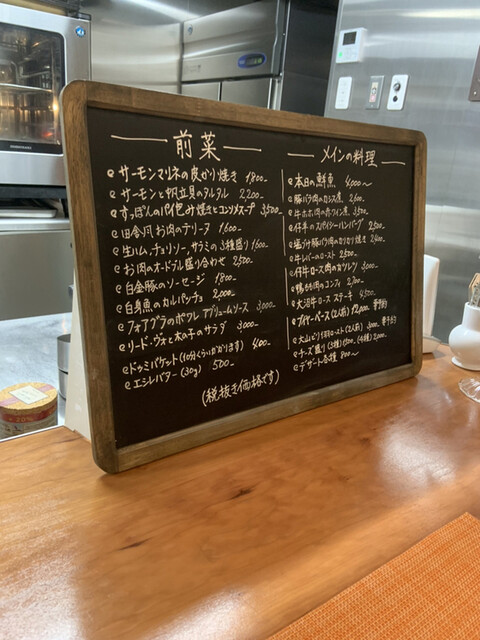 前菜
サーモンマリネの皮がり焼き 1,800
サーモンと帆立貝のタルタル 2,200
すっぽんのパイ包み焼きとコンソメスープ 3,500
田舎風お肉のテリーヌ 1,600
生ハム,チョリソー,サラミの3種盛り 1,600
お肉のオードブル盛り合わせ 2,500
白金豚のソーセージ 1,800
白身魚のカルパッチョ 2,000
フォアグラのポワレ アプリュームソース 3,000
リード・ヴォと木の子のサラダ 3,000
ドゥミバゲット(10分くらいかかります) 400
エシレバター(30g) 500
(税抜き価格です)
メインの料理
本日の鮮魚 4,000〜
豚バラ肉のロースト 2,600
牛ホホ肉の赤ワイン煮 3,500
仔羊のスパイシーハンバーグ 2,500
塩づけ豚バラ肉のカリカリ焼き 2,600
牛レバーのロースト 2,500
仔牛ロース肉のカツレツ 3,000
鴨もも肉のコンフィ 2,300
牛ロースステーキ 4,500
ブイヤベース(2人前) 12,000 要予約
大山どり1羽ロースト(2人前) 要予約
チーズ盛り(3種) (4種)
デザート各種 800〜